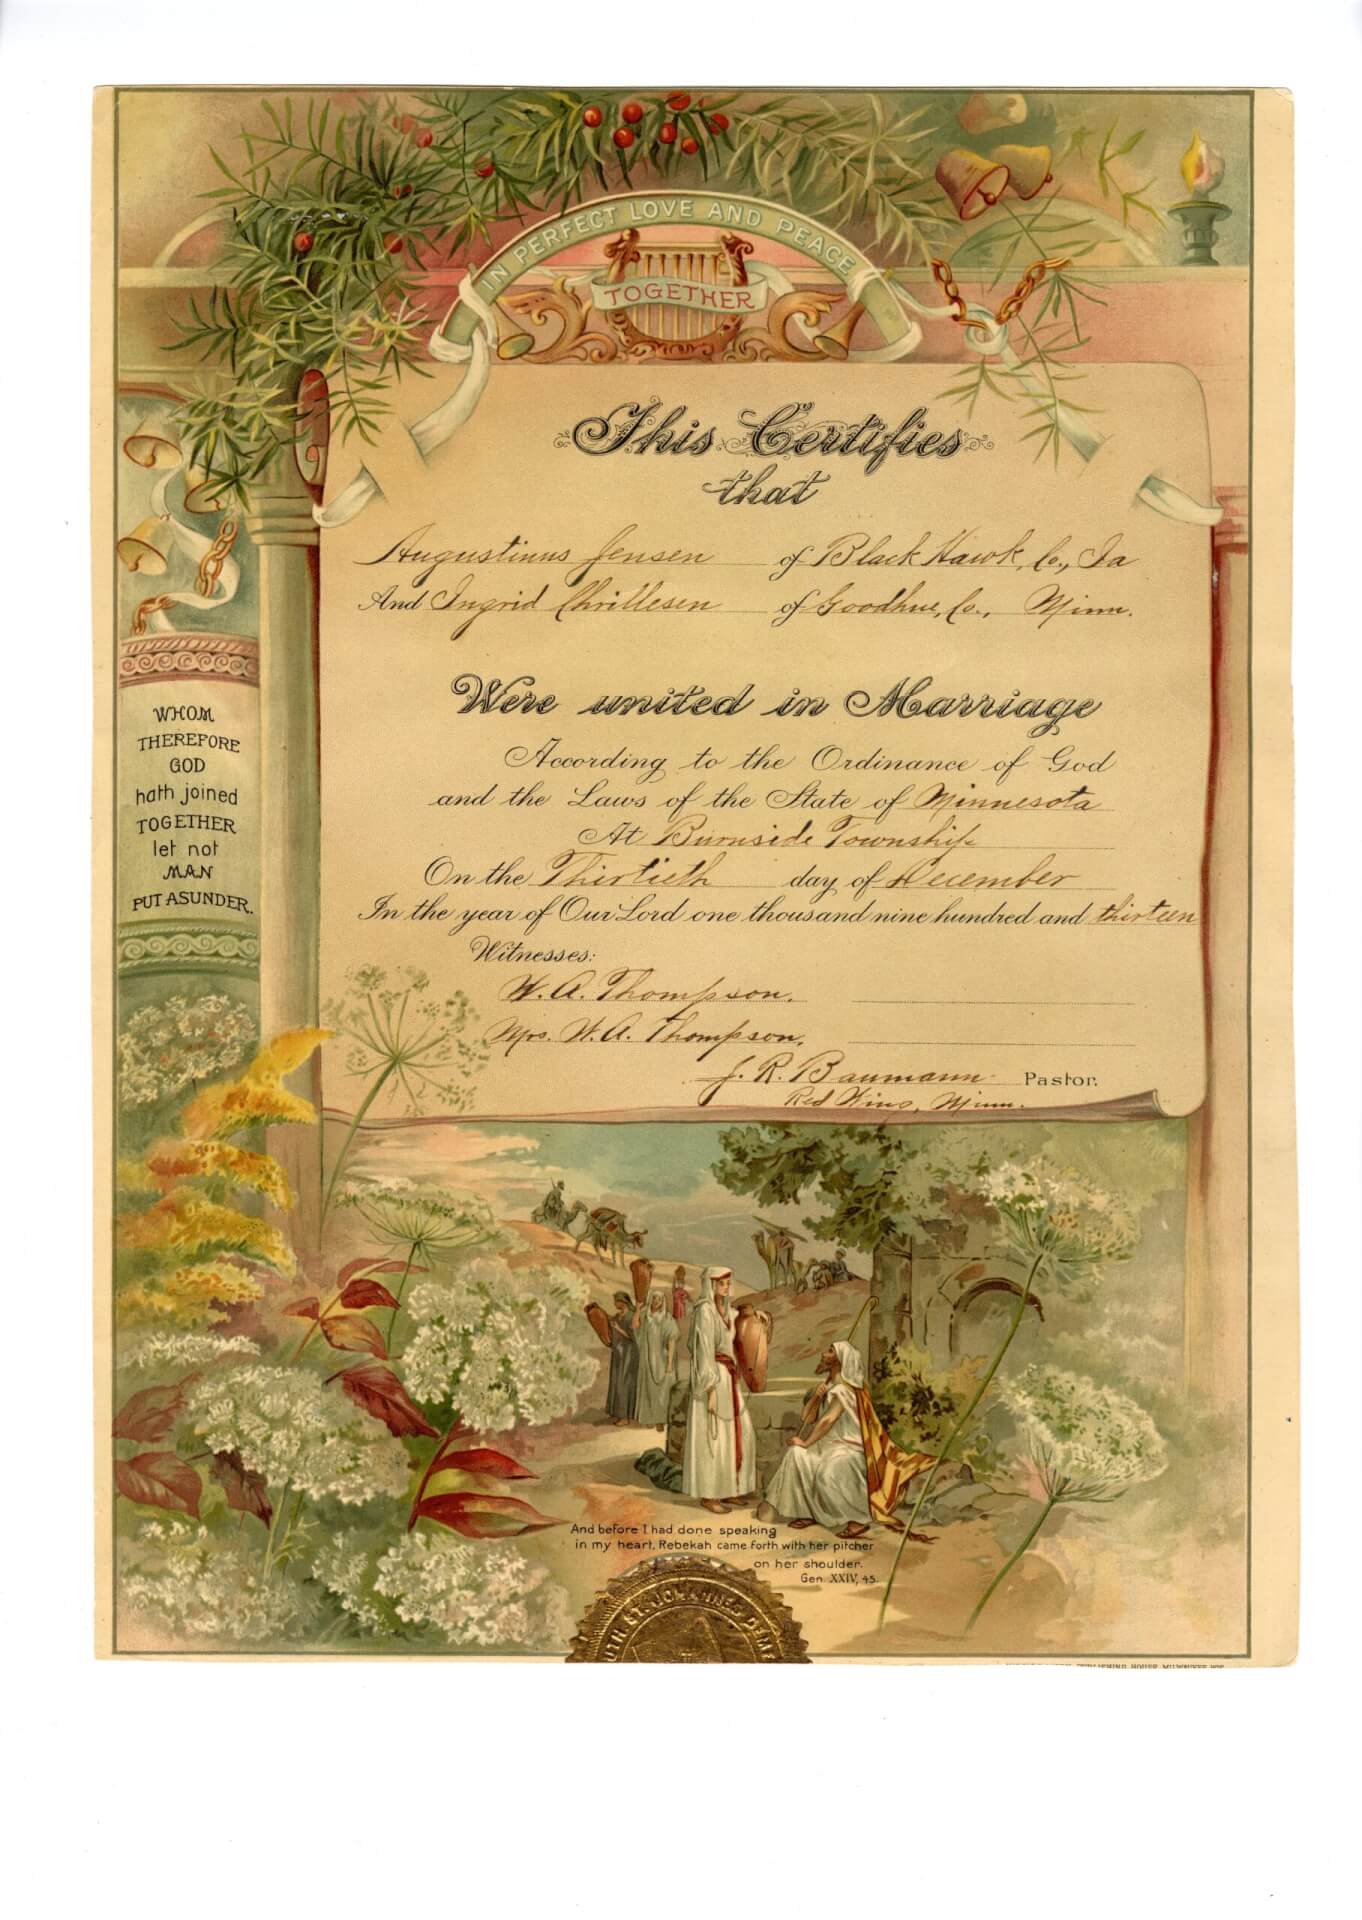 IN PERFECT LOVE AND PEACE
TOGETHER
This Certifies
that
Augustinus Jensen of Black Hawk, Co., Ia
And Ingrid Chrillesen of Goodhue, Co., Minn.
Were united in Marriage
According to the Ordinance of God
and the Laws of the State of Minnesota
At Burnside Township
On the Thirtieth day of December
In the year of Our Lord one thousand nine hundred and thirteen
Witnesses:
W. A. Thompson.
Mrs. W. A. Thompson.
J. R. Baumann Pastor.
Red Wing, Minn.
WHOM
THEREFORE
GOD
hath joined
TOGETHER
let not
MAN
PUT ASUNDER.
And before I had done speaking
in my heart, Rebekah came forth with her pitcher
on her shoulder.
Gen. XXIV, 45.
ST. JOHANNES
HOUSE, MILWAUKEE, WIS.